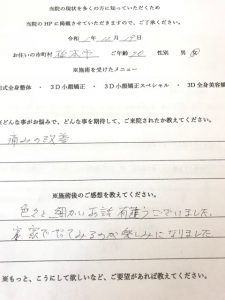 当院の現状を多くの方に知っていただくため
当院の HP に掲載させていただきますので、ご了承ください。
令和 年 月 日
お住いの市町村 松本市 ご年齢 性別 男 女
※施術を受けたメニュー
式全身整体 ・ 3D 小顔矯正 ・ 3D 小顔矯正スペシャル ・ 3D 全身美容
※どんな事がお悩みで、どんな事を期待して、ご来院されたか教えてください。
痛みの改善
※施術後のご感想を教えてください。
色々と、細かいお話 有難うございました。
家でやってみるのが楽しみになりました。
※もっと、こうにして欲しいなど、ご要望があれば教えてください。